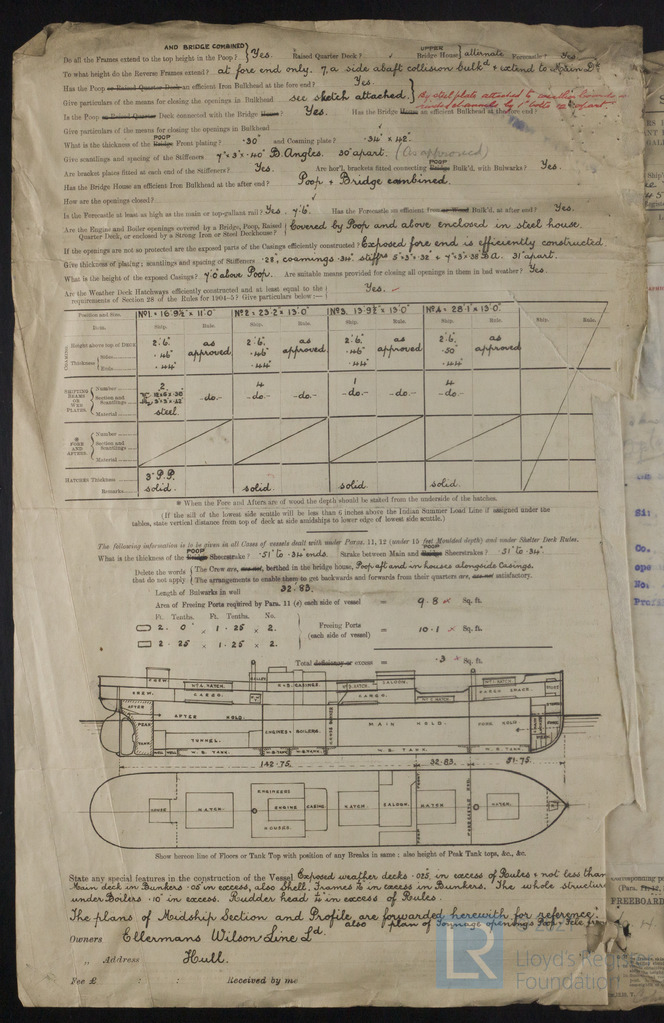 AND BRIDGE COMBINED
Do all the Frames extend to the top height in the Poop? } Yes. Raised Quarter Deck? UPPER Bridge House } alternate Forecastle? Yes
To what height do the Reverse Frames extend? at fore end only. 7, a side abaft collision bulkd & extend to Main Dk
Has the Poop or Raised Quarter Deck an efficient Iron Bulkhead at the fore end? Yes.
Give particulars of the means for closing the openings in Bulkhead see sketch attached. }
Is the Poop or Raised Quarter Deck connected with the Bridge House? Yes. Has the Bridge House an efficient Bulkhead at the fore end?
Give particulars of the means for closing the openings in Bulkhead
What is the thickness of the POOP Bridge Front plating? ·30" and Coaming plate? ·34" × 42"
Give scantlings and spacing of the Stiffeners. 7" × 3" × ·40" B. Angles. 30" apart. (As approved)
Are bracket plates fitted at each end of the Stiffeners? Yes. Are hor'l. brackets fitted connecting POOP Bridge Bulk'd, with Bulwarks? Yes.
Has the Bridge House an efficient Iron Bulkhead at the after end? Poop & Bridge combined.
How are the openings closed?
Is the Forecastle at least as high as the main or top-gallant rail? Yes 7'.6" Has the Forecastle an efficient Iron or Wood Bulk'd. at after end? Yes.
Are the Engine and Boiler openings covered by a Bridge, Poop, Raised Quarter Deck, or enclosed by a Strong Iron or Steel Deckhouse? } Covered by Poop and above enclosed in steel house.
If the openings are not so protected are the exposed parts of the Casings efficiently constructed? Exposed fore end is efficiently constructed.
Give thickness of plating; scantlings and spacing of Stiffeners ·28", coamings ·34" stiffrs 5" × 3" × ·32" & 7" × 3" × ·38 B.A. 31" apart.
What is the height of the exposed Casings? 7'.0 above Poop. Are suitable means provided for closing all openings in them in bad weather? Yes.
Are the Weather Deck Hatchways efficiently constructed and at least equal to the requirements of Section 28 of the Rules for 1904-5? Give particulars below:— } Yes.
Position and Size. No 1 = 16·9½ × 11'·0" No 2 = 23·2 × 13·0" No 3. 13·9½" × 13·0" No 4 = 28·1" × 13·0"
Item. Ship. Rule. Ship. Rule. Ship. Rule. Ship. Rule. Ship. Rule.
COAMING Height above top of DECK 2'.6" as approved 2'.6" as approved 2'.6" as approved 2'.6" as approved
Thickness { Sides ·46" ·46" ·46" ·50"
Ends ·44" ·44" ·44" ·44"
SHIFTING BEAMS OR WEB PLATES Number 2 4 1 4
Section and Scantlings -do.- -do.- -do.- -do.- -do.- -do.- -do.-
Material steel.
* FORE AND AFTERS. Number
Section and Scantlings
Material
HATCHES Thickness 3" P.P.
Remarks solid. solid. solid. solid.
* When the Fore and Afters are of wood the depth should be stated from the underside of the hatches.
(If the sill of the lowest side scuttle will be less than 6 inches above the Indian Summer Load Line if assigned under the tables, state vertical distance from top of deck at side amidships to lower edge of lowest side scuttle.)
The following information is to be given in all Cases of vessels dealt with under Paras. 11, 12 (under 15 feet Moulded depth) and under Shelter Deck Rules.
What is the thickness of the POOP Bridge Sheerstrake? ·51" to ·34" ends. Strake between Main and POOP Bridge Sheerstrakes? ·51" to ·34".
Delete the words that do not apply { The Crew are, are not, berthed in the bridge house, Poop aft and in houses alongside Casings.
The arrangements to enable them to get backwards and forwards from their quarters are, are not satisfactory.
Length of Bulwarks in well 32·83.
Area of Freeing Ports required by Para. 11 (e) each side of vessel = 9·8 × Sq. ft.
Ft. Tenths. Ft. Tenths. No.
2. 0 × 1·25 × 2. } Freeing Ports (each side of vessel) = 10·1 × Sq. ft.
2. 25 × 1·25 × 2.
Total deficiency or excess = ·3 × Sq. ft.
CREW. CREW. No 4. HATCH. GALLEY E & B. CASINGS. No 3. HATCH. SALOON. No 2 HATCH No 1. HATCH
CARGO. CARGO. CARGO SPACE.
AFTER PEAK TANK AFTER HOLD. ENGINES & BOILERS. CROSS BUNKER MAIN HOLD. FORE HOLD
TUNNEL. W.B. TANK. W.B. TANK W.B. TANK. W.B. TANK.
142·75. 32·83. 51·75.
HOUSE HATCH. ENGINEERS ENGINE CASING HOUSES. HATCH. SALOON. HATCH FORECASTLE END HATCH.
Show hereon line of Floors or Tank Top with position of any Breaks in same; also height of Peak Tank tops, &c., &c.
State any special features in the construction of the Vessel Exposed weather decks ·025, in excess of Rules & not less than
Main deck in Bunkers ·05 in excess, also Shell. Frames in excess in Bunkers. The whole structure
under Boilers ·10" in excess. Rudder head ¼ in excess of Rules.
The plans of Midship Section and Profile are forwarded herewith for reference.
also plan of Tonnage openings Poop
Owners Ellermans Wilson Line Ld.
„ Address Hull.
Fee £ : : Received by me
© 2021
LR
Lloyd's Register
Foundation
(Para.
FREEBOARD